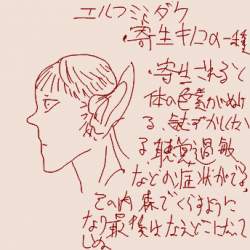 エルフミミダケ
・寄生キノコの一種
・寄生されると
体の色素がぬけ
る、気むずかしくな
る、聴覚過敏
などの症状がでる。
その内森でくらすように
なり最後はなえどこになって
しぬ